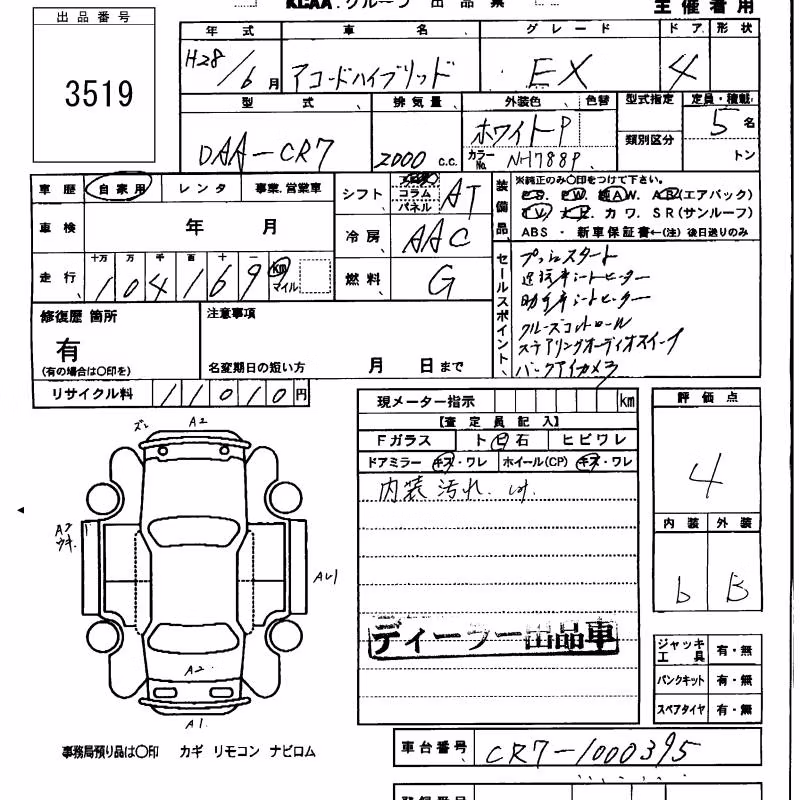 KCAA.グループ 出品票 主催者用
出品番号
3519
年式 車名 グレード ドア 形状
H28/6月 アコードハイブリッド EX 4
型式 排気量 外装色 色替 型式指定 定員・積載
DAA-CR7 2000 c.c. ホワイトP 類別区分 5名
カラーNo. NH788P トン
車歴 自家用 レンタ 事業.営業車
車検 年 月
走行 十万 万 千 百 十 一
104169 km マイル
シフト コラム パネル AT
冷房 AAC
燃料 G
装備品
※純正のみ○印をつけて下さい。
PS. PW. 純AW. AB(エアバック)
TV. ナビ. カワ. SR(サンルーフ)
ABS ・ 新車保証書←(注)後日送りのみ
セールスポイント
プッシュスタート
運転席シートヒーター
助手席シートヒーター
クルーズコントロール
ステアリングオーディオスイッチ
バックアイカメラ
修復歴 箇所
有
(有の場合は○印を)
注意事項
名変期日の短い方 月 日まで
リサイクル料 11010円
現メーター指示 km
【査定員記入】
Fガラス ト ビ 石 ヒビワレ
ドアミラー キズ・ワレ ホイール(CP) キズ・ワレ
内装 汚れ.
ディーラー出品車
評価点
4
内装 外装
b B
ジャッキ工具 有・無
パンクキット 有・無
スペアタイヤ 有・無
A2
A2
ウキ.
A2
A1.
事務局預り品は○印 カギ リモコン ナビロム
車台番号 CR7-1000395
登録番号